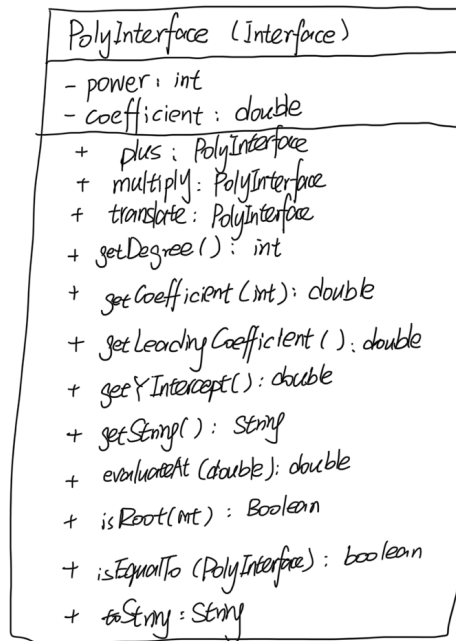 PolyInterface (Interface)
- power: int
- coefficient: double
+ plus: PolyInterface
+ multiply: PolyInterface
+ translate: PolyInterface
+ getDegree(): int
+ getCoefficient(int): double
+ getLeadingCoefficient(): double
+ getYIntercept(): double
+ getString(): String
+ evaluateAt(double): double
+ isRoot(int): Boolean
+ isEqualTo(PolyInterface): boolean
+ toString: String